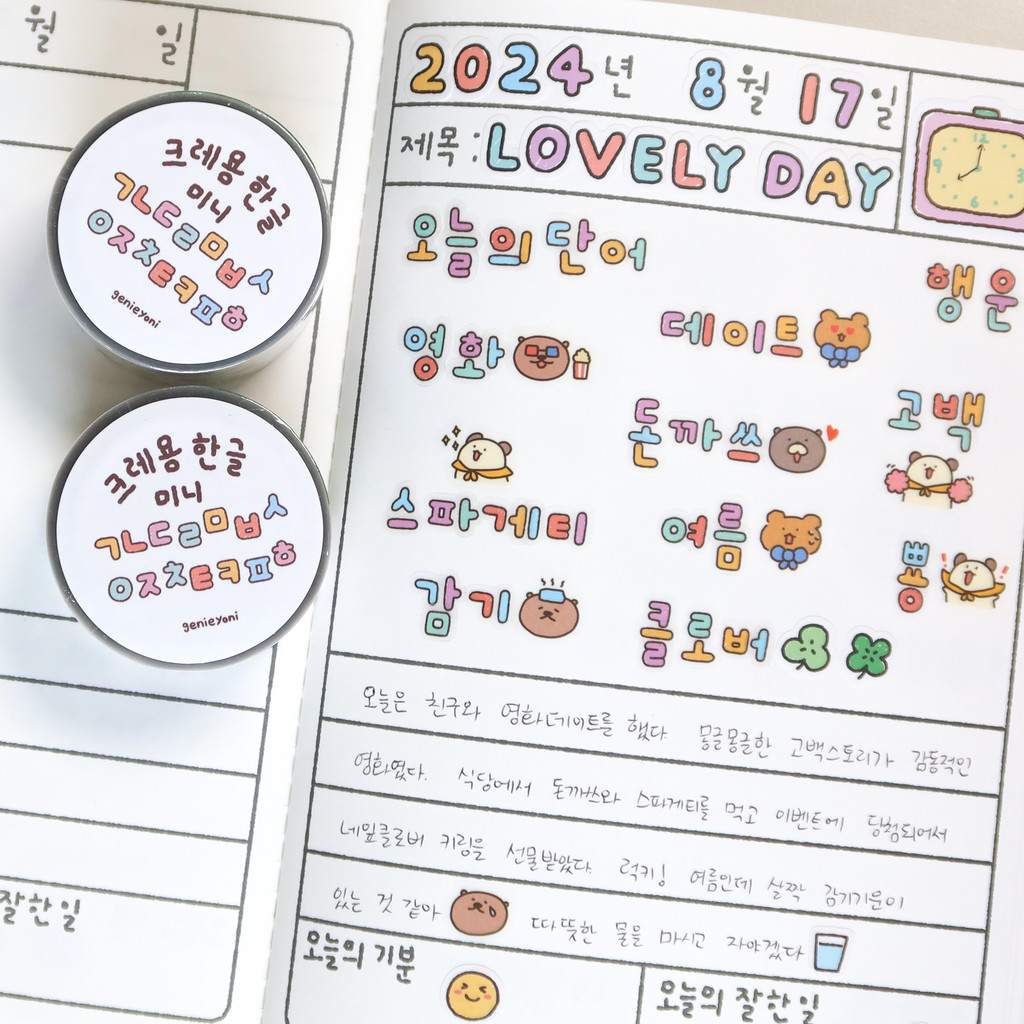 월 일
크레용 한글
미니
ㄱㄴㄷㄹㅁㅂㅅ
ㅇㅈㅊㅌㅋㅍㅎ
genieyoni
크레용 한글
미니
ㄱㄴㄷㄹㅁㅂㅅ
ㅇㅈㅊㅌㅋㅍㅎ
genieyoni
잘한일
2024년 8월 17일
제목: LOVELY DAY
12
9 3
6
오늘의 단어
행운
영화 데이트
고백
돈까쓰
스파게티 여름
뿅
감기 클로버
오늘은 친구와 영화데이트를 했다 몽글몽글한 고백스토리가 감동적인
영화였다. 식당에서 돈까쓰와 스파게티를 먹고 이벤트에 당첨되어서
네잎클로버 키링을 선물받았다. 럭키! 여름인데 살짝 감기기운이
있는 것 같아 따뜻한 물을 마시고 자야겠다
오늘의 기분
오늘의 잘한일